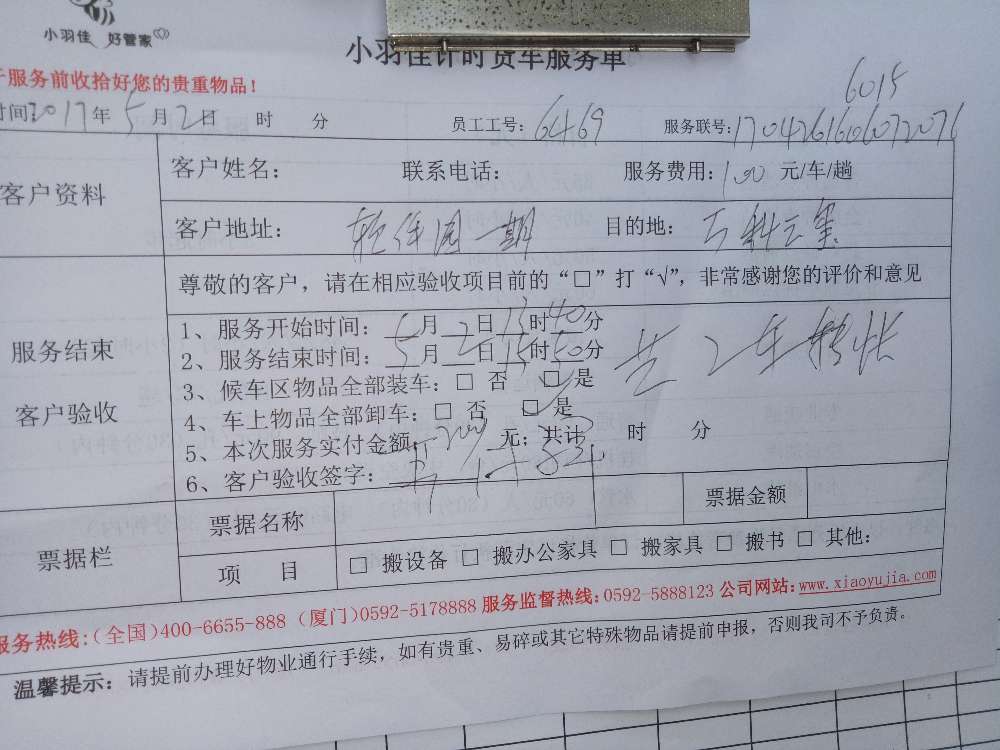 小羽佳 好管家
小羽佳计时货车服务单
于服务前收拾好您的贵重物品!
6015
时间:2017年5月2日 时 分 员工工号:6469 服务联号:1704261606072076
客户资料
客户姓名: 联系电话: 服务费用:100 元/车/趟
客户地址: 一期 目的地: 万科云
服务结束
客户验收
尊敬的客户,请在相应验收项目前的“□”打“√”,非常感谢您的评价和意见
1、服务开始时间:5月2日13时40分
2、服务结束时间:5月2日15时50分
共2车转帐
3、候车区物品全部装车:□ 否 □是
4、车上物品全部卸车:□ 否 □是
5、本次服务实付金额:200元;共计 时 分
6、客户验收签字:
票据栏
票据名称 票据金额
项 目 □ 搬设备 □ 搬办公家具 □ 搬家具 □ 搬书 □ 其他:
服务热线:(全国)400-6655-888 (厦门)0592-5178888 服务监督热线:0592-5888123 公司网站:www.xiaoyujia.com
温馨提示:请提前办理好物业通行手续,如有贵重、易碎或其它特殊物品请提前申报,否则我司不予负责。